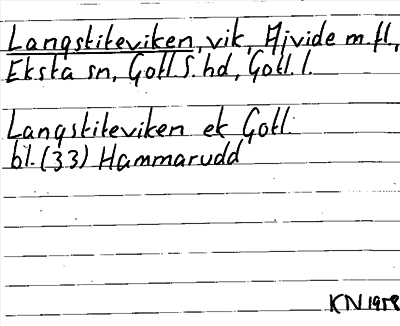 Langstiteviken, vik, Ajvide m.fl.,
Eksta sn, Gotl. S. hd, Gotl. l.
Langstiteviken ek Gotl.
bl. (33) Hammarudd
KN 1958